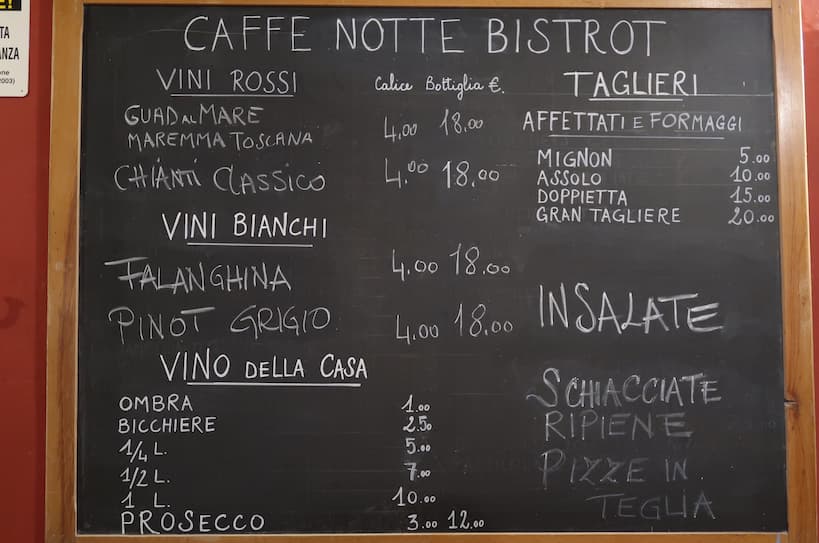 TA
NZA
one
2003)
CAFFE NOTTE BISTROT
VINI ROSSI Calice Bottiglia €.
GUAD al MARE
MAREMMA TOSCANA 4,00 18,00
CHIANTI CLASSICO 4,00 18,00
VINI BIANCHI
FALANGHINA 4,00 18,00
PINOT GRIGIO 4,00 18,00
VINO DELLA CASA
OMBRA 1.00
BICCHIERE 2.50
1/4 L. 5.00
1/2 L. 7.00
1 L. 10.00
PROSECCO 3.00 12.00
TAGLIERI
AFFETTATI E FORMAGGI
MIGNON 5.00
ASSOLO 10.00
DOPPIETTA 15.00
GRAN TAGLIERE 20.00
INSALATE
SCHIACCIATE
RIPIENE
PIZZE IN
TEGLIA